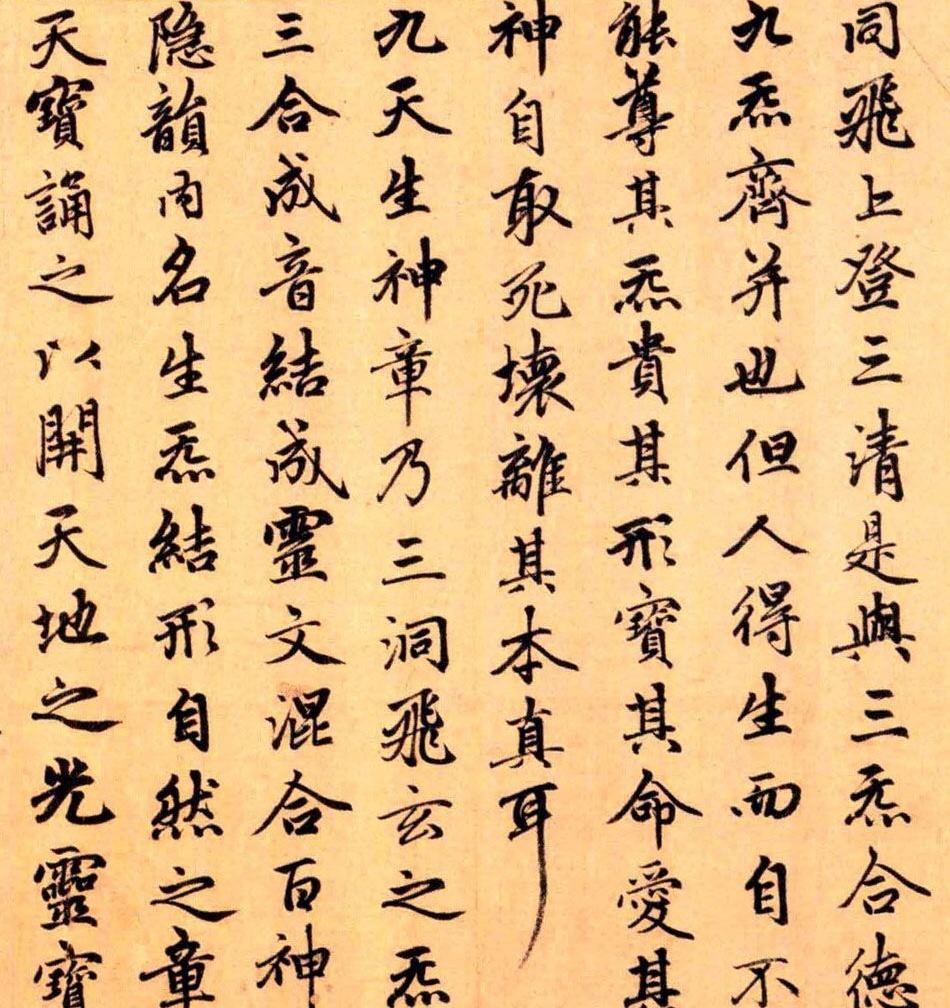 同飛上登三清是與三炁合德
九炁齊并也但人得生而自不
能尊其炁貴其形寶其命愛其
神自取死壞離其本真耳
九天生神章乃三洞飛玄之炁
三合成音結成靈文混合百神
隐韻内名生炁結形自然之章
天寶誦之以開天地之光靈寶